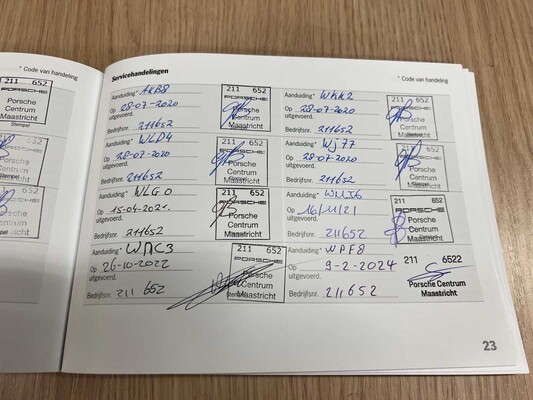 * Code van handeling
Servicehandelingen
* Code van handeling
Aanduiding* AKB8
Op 28-07-2020
uitgevoerd.
Bedrijfsnr. 211652
211 652
PORSCHE
Porsche
Centrum
Maastricht
Aanduiding* WKK2
Op 28-07-2020
uitgevoerd.
Bedrijfsnr. 211652
211 652
PORSCHE
Porsche
Centrum
Maastricht
Aanduiding* WLP4
Op 28-07-2020
uitgevoerd.
Bedrijfsnr. 211652
211 652
PORSCHE
Porsche
Centrum
Maastricht
Aanduiding* WJ77
Op 28-07-2020
uitgevoerd.
Bedrijfsnr. 211652
211 652
PORSCHE
Porsche
Centrum
Maastricht
Aanduiding* WLG0
Op 15-04-2021.
uitgevoerd.
Bedrijfsnr. 211652
211 652
PORSCHE
Porsche
Centrum
Maastricht
Aanduiding*
Op 16/11/21
uitgevoerd.
Bedrijfsnr. 211652
211 652
PORSCHE
Porsche
Centrum
Maastricht
Aanduiding* WMC3
Op 26-10-2022
uitgevoerd.
Bedrijfsnr. 211 652
211 652
PORSCHE
Porsche
Centrum
Maastricht
Aanduiding* WPF8
Op 9-2-2024
uitgevoerd.
Bedrijfsnr. 211652
211 6522
Porsche Centrum
Maastricht
211 652
PORSCHE
Porsche
Centrum
Maastricht
Stempel
652
652
PORSCHE
Porsche
Centrum
Maastricht
23